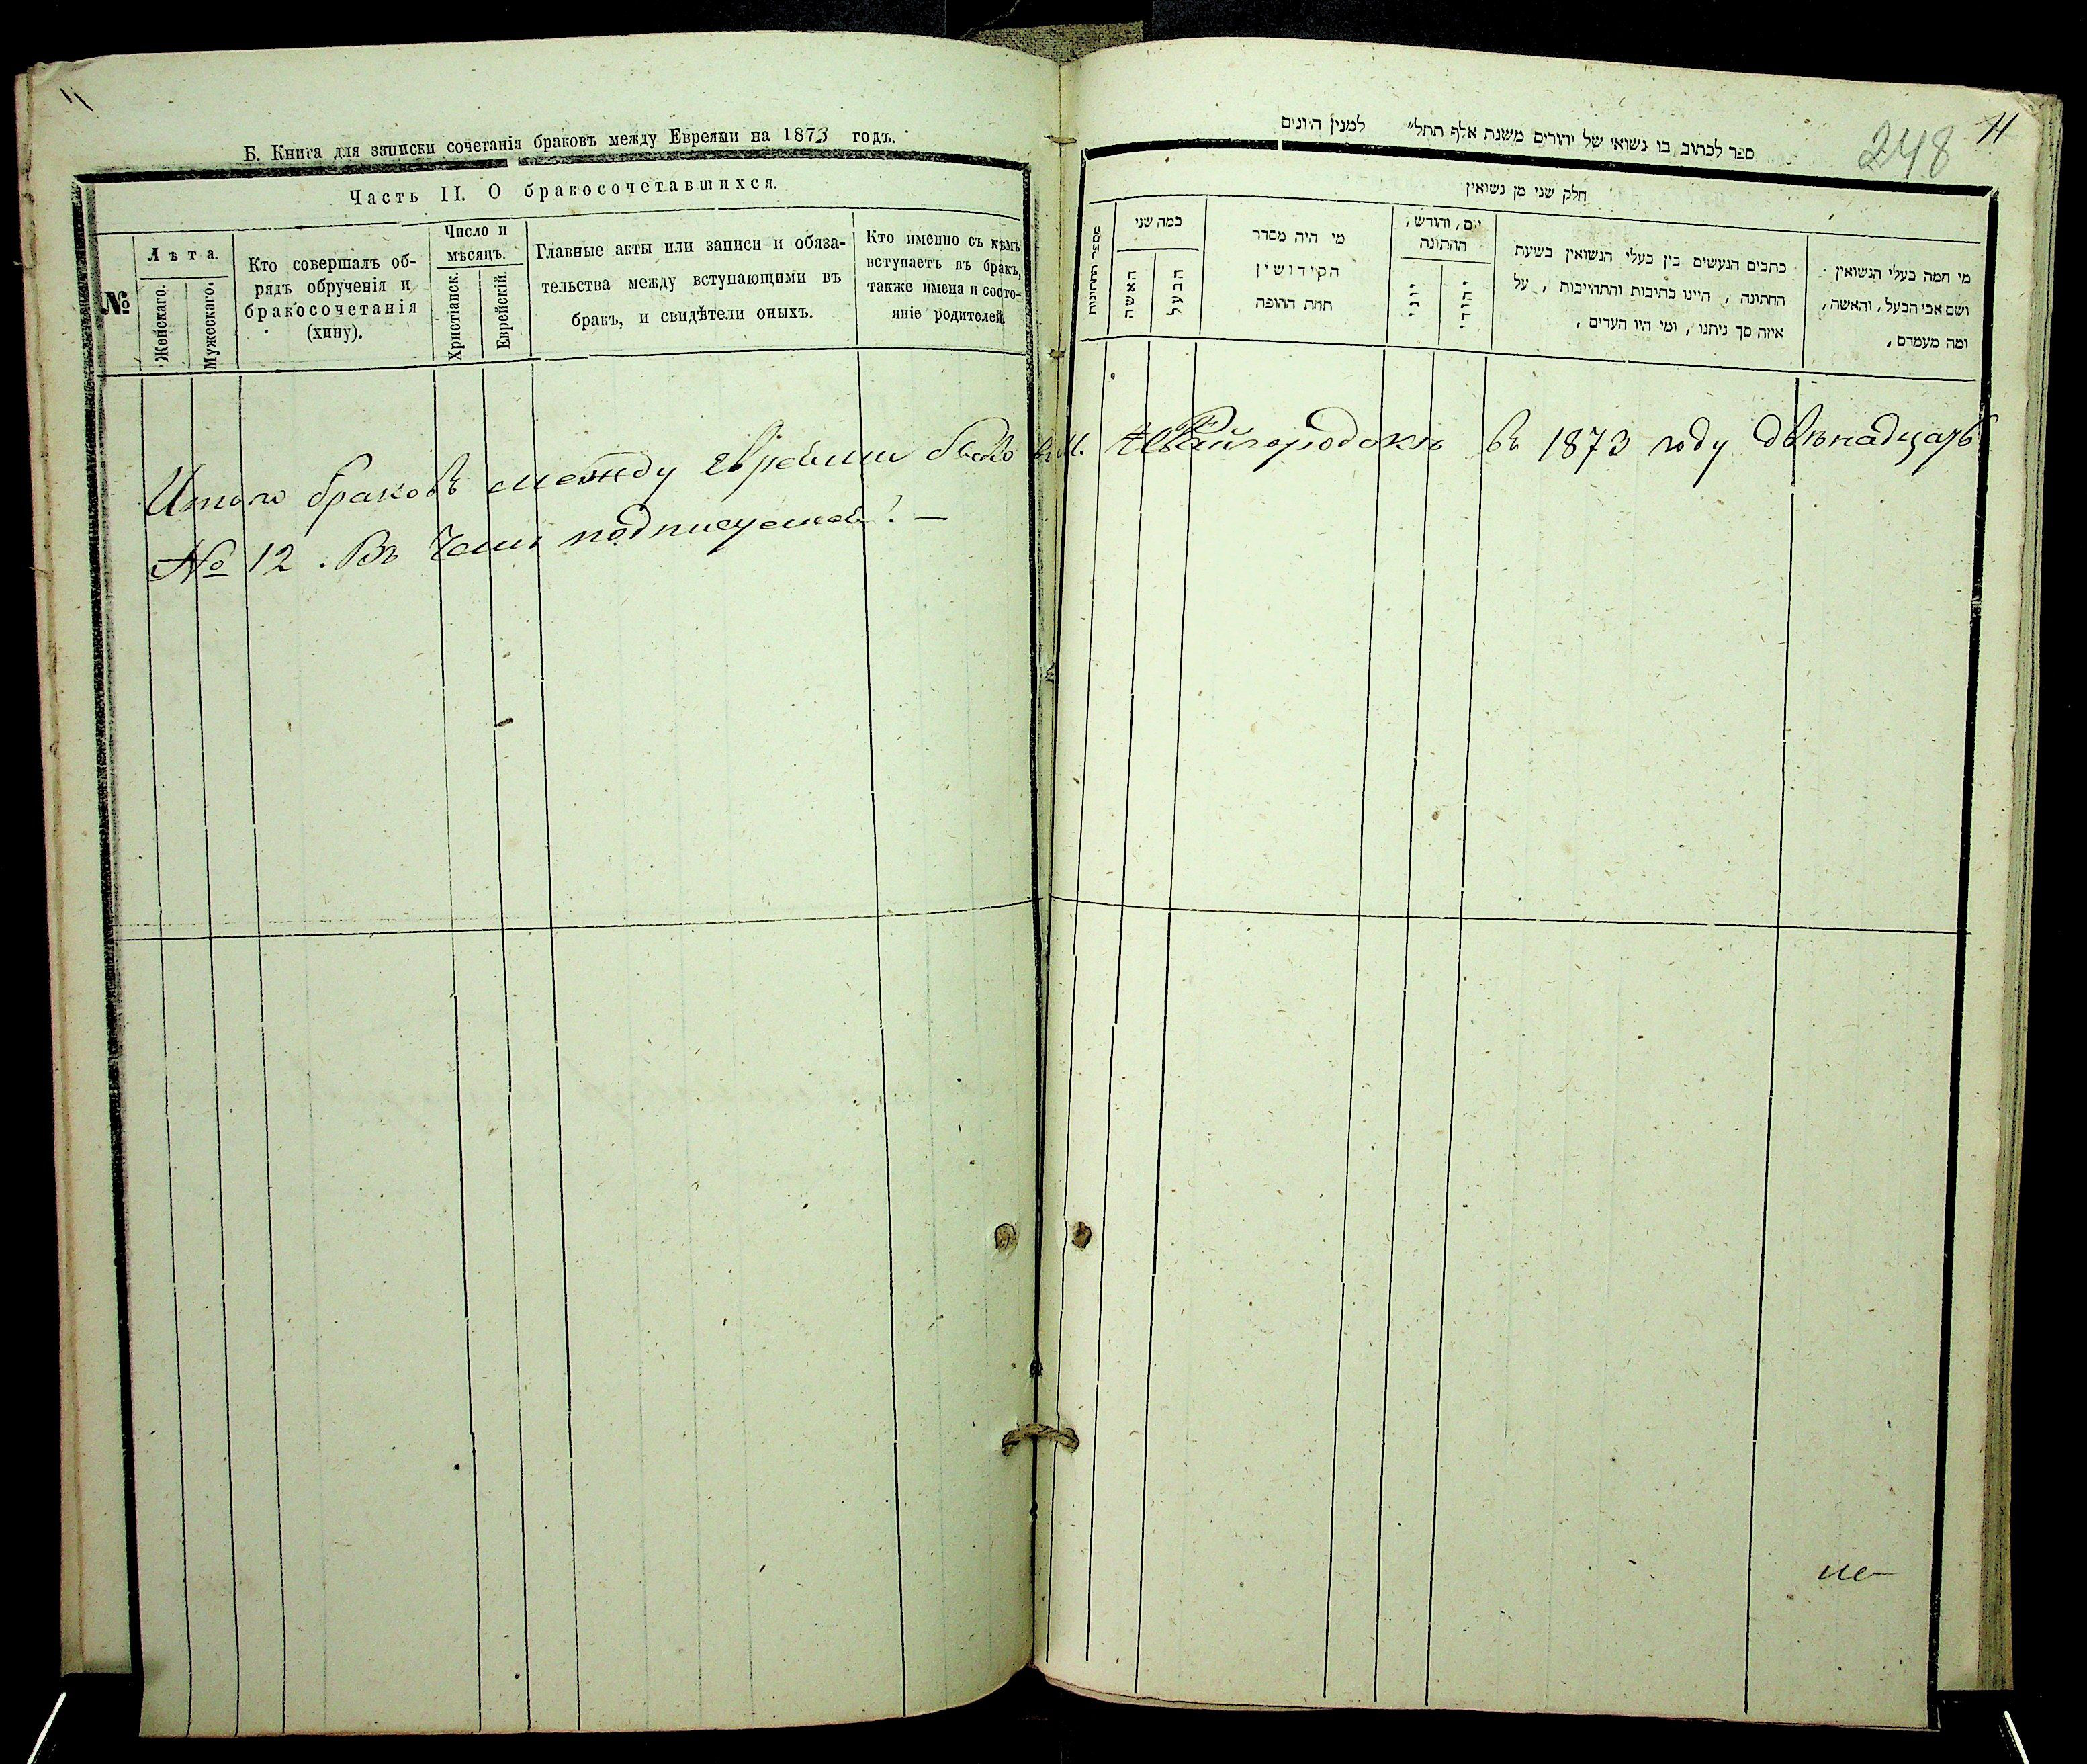 Б. Книга для записки сочетанія браковъ между Евреями на 1873 годъ.
Часть II. О бракосочетавшихся.
№
Лѣта.
Женскаго.
Мужескаго.
Кто совершалъ об-
рядъ обрученія и
бракосочетанія
(хину).
Число и
мѣсяцъ.
Христіанск.
Еврейскій.
Главные акты или записи и обяза-
тельства между вступающими въ
бракъ, и свидѣтели оныхъ.
Кто именно съ кѣмъ
вступаетъ въ бракъ,
также имена и состо-
яніе родителей.
248
11
ספר לכתוב בו נשואי של יהודים משנת אלף תתל״ למנין היונים
חלק שני מן נשואין
מספר החתונות
כמה שני
האשה
הבעל
מי היה מסדר
הקידושין
תחת החופה
יום, וחודש,
החתונה
יוני
יהודי
כתבים הנעשים בין בעלי הנשואין בשעת
החתונה, היינו כתיבות והתחייבות, על
איזה סך ניתנו, ומי היו העדים,
מי המה בעלי הנשואין
ושם אבי הבעל, והאשה,
ומה מעמדם,
Итого браковъ между евреями было въ М. Райгородокъ въ 1873 году двѣнадцать
№ 12. Въ чемъ подписуемся. —